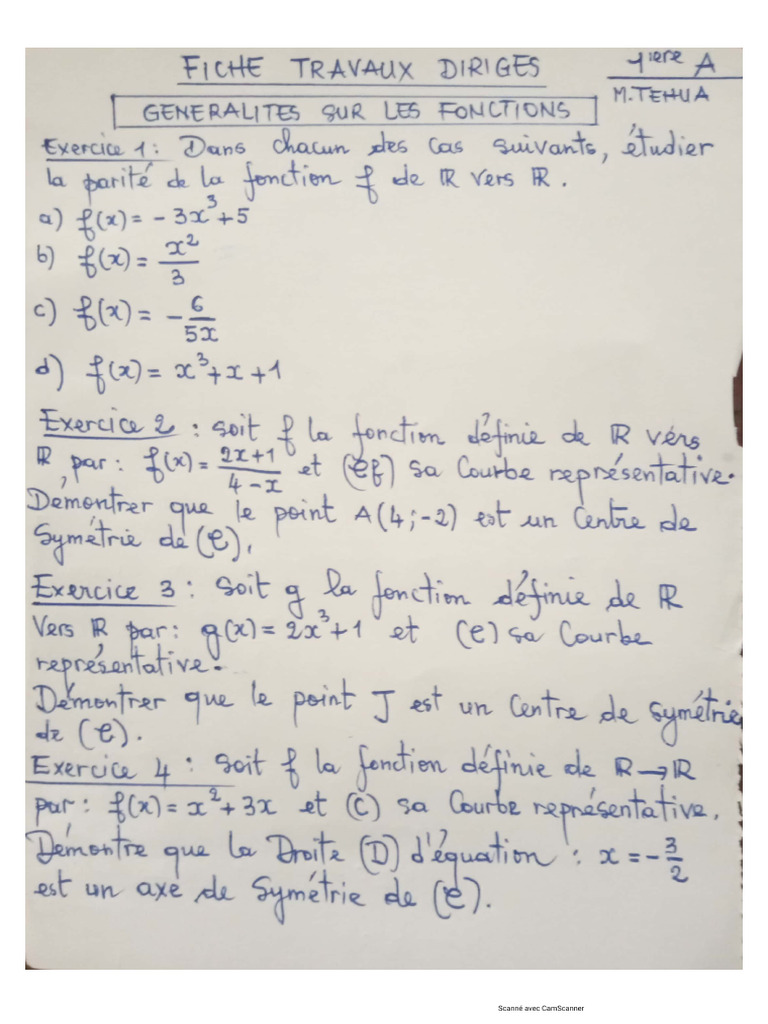 FICHE TRAVAUX DIRIGES
1iere A
M.TEHUA
GENERALITES SUR LES FONCTIONS
Exercice 1 : Dans chacun des cas suivants, étudier
la parité de la fonction f de ℝ vers ℝ.
a) f(x) = -3x³+5
b) f(x) = x²/3
c) f(x) = -6/5x
d) f(x) = x³+x+1
Exercice 2 : soit f la fonction définie de ℝ vers
ℝ, par : f(x) = (2x+1)/(4-x) et (Cf) sa Courbe représentative.
Demontrer que le point A(4;-2) est un Centre de
Symétrie de (C).
Exercice 3 : Soit g la fonction définie de ℝ
Vers ℝ par : g(x) = 2x³+1 et (C) sa Courbe
représentative.
Démontrer que le point J est un Centre de Symétrie
de (C).
Exercice 4 : Soit f la fonction définie de ℝ→ℝ
par : f(x) = x²+3x et (C) sa Courbe représentative.
Démontre que la Droite (D) d'équation : x = -3/2
est un axe de Symétrie de (C).
Scanné avec CamScanner